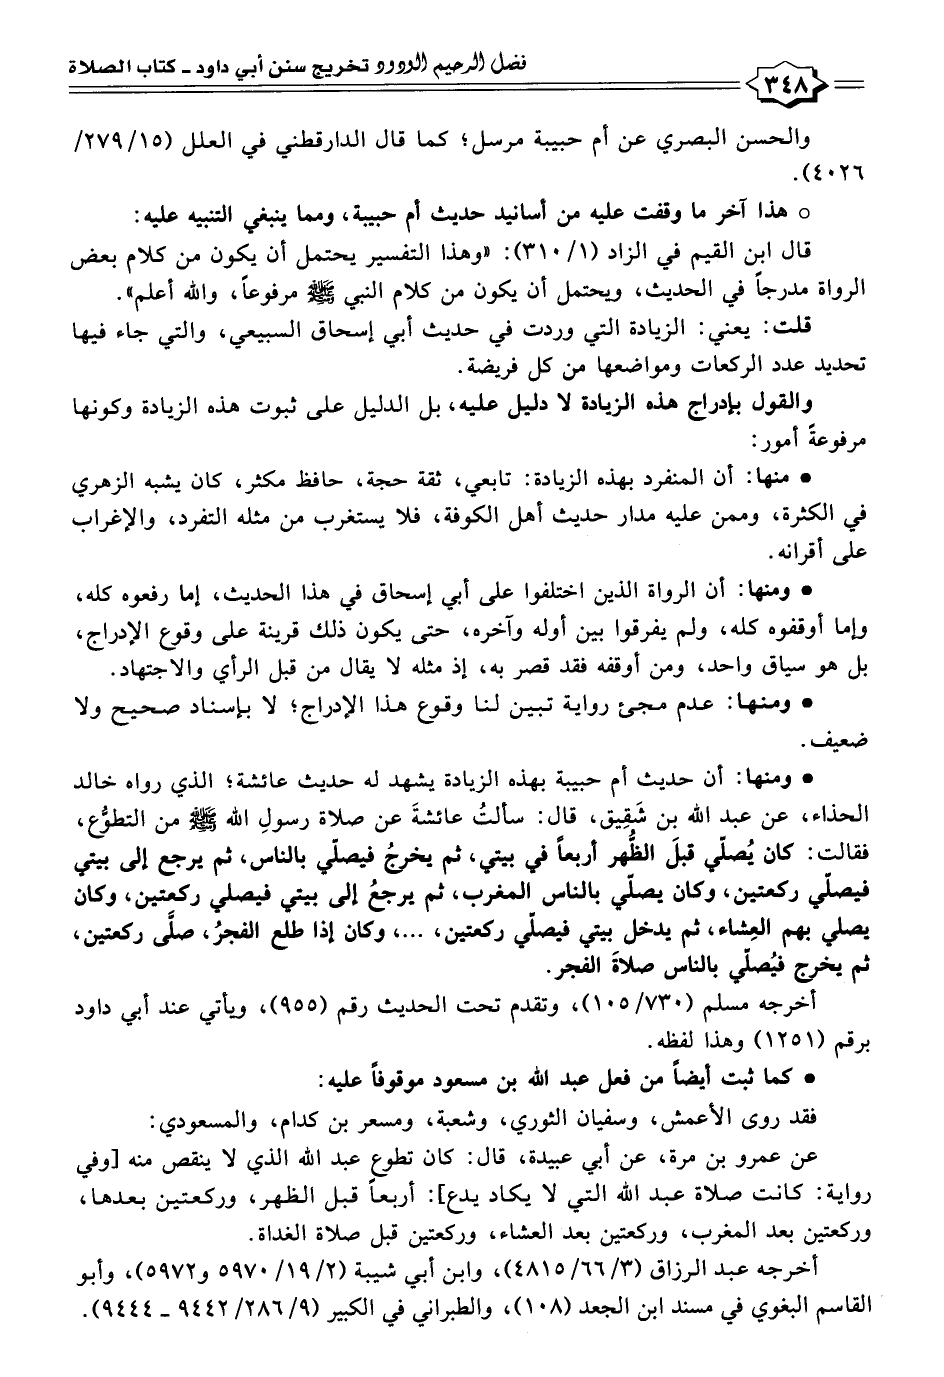 فضل الرحيم الودود تخريج سنن أبي داود ـ كتاب الصلاة
٣٤٨
والحسن البصري عن أم حبيبة مرسل؛ كما قال الدارقطني في العلل (١٥/ ٢٧٩/
٤٠٢٦).
○ هذا آخر ما وقفت عليه من أسانيد حديث أم حبيبة، ومما ينبغي التنبيه عليه:
قال ابن القيم في الزاد (١/ ٣١٠): «وهذا التفسير يحتمل أن يكون من كلام بعض
الرواة مدرجاً في الحديث، ويحتمل أن يكون من كلام النبي ﷺ مرفوعاً، والله أعلم».
قلت: يعني: الزيادة التي وردت في حديث أبي إسحاق السبيعي، والتي جاء فيها
تحديد عدد الركعات ومواضعها من كل فريضة.
والقول بإدراج هذه الزيادة لا دليل عليه، بل الدليل على ثبوت هذه الزيادة وكونها
مرفوعةً أمور:
• منها: أن المنفرد بهذه الزيادة: تابعي، ثقة حجة، حافظ مكثر، كان يشبه الزهري
في الكثرة، وممن عليه مدار حديث أهل الكوفة، فلا يستغرب من مثله التفرد، والإغراب
على أقرانه.
• ومنها: أن الرواة الذين اختلفوا على أبي إسحاق في هذا الحديث، إما رفعوه كله،
وإما أوقفوه كله، ولم يفرقوا بين أوله وآخره، حتى يكون ذلك قرينة على وقوع الإدراج،
بل هو سياق واحد، ومن أوقفه فقد قصر به، إذ مثله لا يقال من قبل الرأي والاجتهاد.
• ومنها: عدم مجئ رواية تبين لنا وقوع هذا الإدراج؛ لا بإسناد صحيح ولا
ضعيف.
• ومنها: أن حديث أم حبيبة بهذه الزيادة يشهد له حديث عائشة؛ الذي رواه خالد
الحذاء، عن عبد الله بن شَقِيق، قال: سألتُ عائشةَ عن صلاة رسولِ الله ﷺ من التطوُّع،
فقالت: كان يُصلّي قبلَ الظُّهر أربعاً في بيتي، ثم يخرجُ فيصلّي بالناس، ثم يرجع إلى بيتي
فيصلّي ركعتين، وكان يصلّي بالناس المغرب، ثم يرجعُ إلى بيتي فيصلي ركعتين، وكان
يصلي بهم العِشاء، ثم يدخل بيتي فيصلّي ركعتين، ...، وكان إذا طلع الفجرُ، صلَّى ركعتين،
ثم يخرج فيُصلّي بالناس صلاةَ الفجر.
أخرجه مسلم (٧٣٠/ ١٠٥)، وتقدم تحت الحديث رقم (٩٥٥)، ويأتي عند أبي داود
برقم (١٢٥١) وهذا لفظه.
• كما ثبت أيضاً من فعل عبد الله بن مسعود موقوفاً عليه:
فقد روى الأعمش، وسفيان الثوري، وشعبة، ومسعر بن كدام، والمسعودي:
عن عمرو بن مرة، عن أبي عبيدة، قال: كان تطوع عبد الله الذي لا ينقص منه [وفي
رواية: كانت صلاة عبد الله التي لا يكاد يدع]: أربعاً قبل الظهر، وركعتين بعدها،
وركعتين بعد المغرب، وركعتين بعد العشاء، وركعتين قبل صلاة الغداة.
أخرجه عبد الرزاق (٣/ ٦٦/ ٤٨١٥)، وابن أبي شيبة (٢/ ١٩/ ٥٩٧٠ و٥٩٧٢)، وأبو
القاسم البغوي في مسند ابن الجعد (١٠٨)، والطبراني في الكبير (٩/ ٢٨٦/ ٩٤٤٢ ـ ٩٤٤٤).